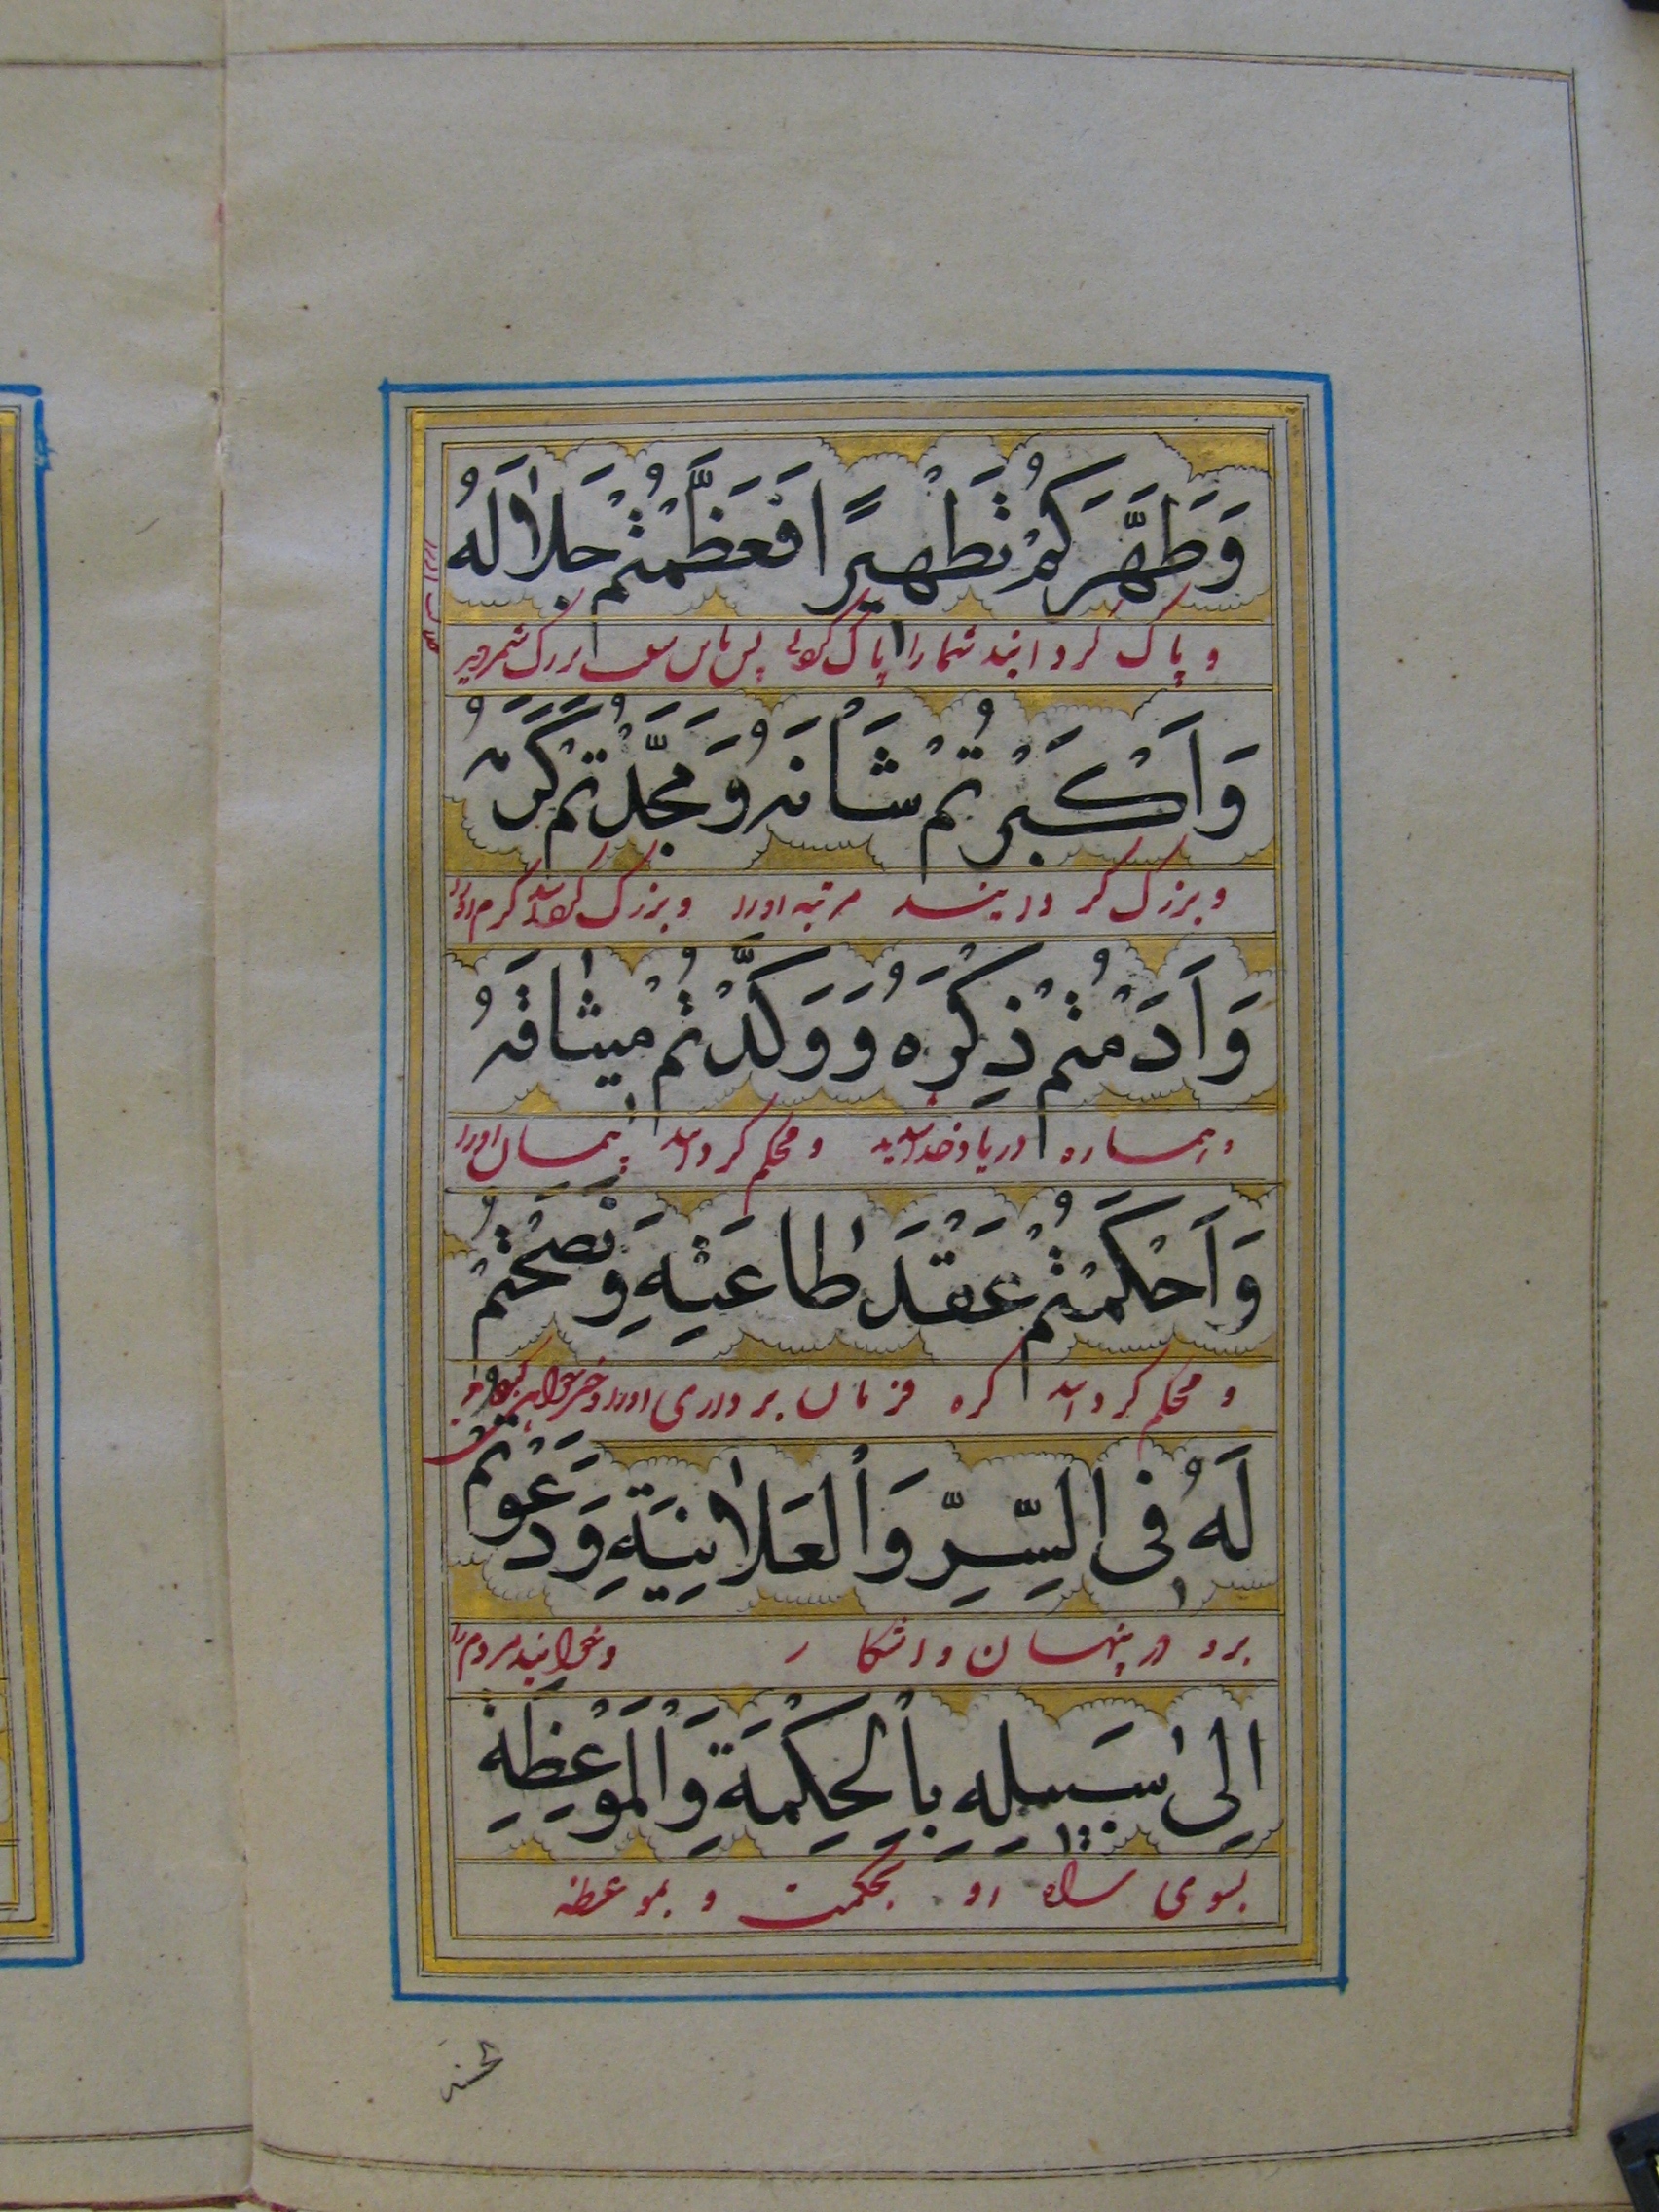 وَطَهَّرَكُمْ تَطْهيرًا فَعَظَّمْتُمْ جَلالَهُ
و پاک گردانید شما را پاک کردنی پس بزرگ شمردید
وَاَكْبَرْتُمْ شَاْنَهُ وَمَجَّدْتُمْ كَرَمَهُ
و بزرگ گردانیدید مرتبه اورا و بزرگ کرم اورا
وَاَدَمْتُمْ ذِكْرَهُ وَوَكَّدْتُمْ ميثاقَهُ
در یاد و محکم کردید پیمان اورا
وَاَحْكَمْتُمْ عَقْدَ طاعَتِهِ وَنَصَحْتُمْ
و محکم کردید گره فرمان برداری اورا
لَهُ فِى السِّرِّ وَالْعَلانِيَةِ وَدَعَوْتُمْ
در پنهان و اشکار و خوانید مردم را
اِلى سَبيلِهِ بِالْحِكْمَةِ وَالْمَوْعِظَةِ
بسوی راه او بحکمت و بموعظه